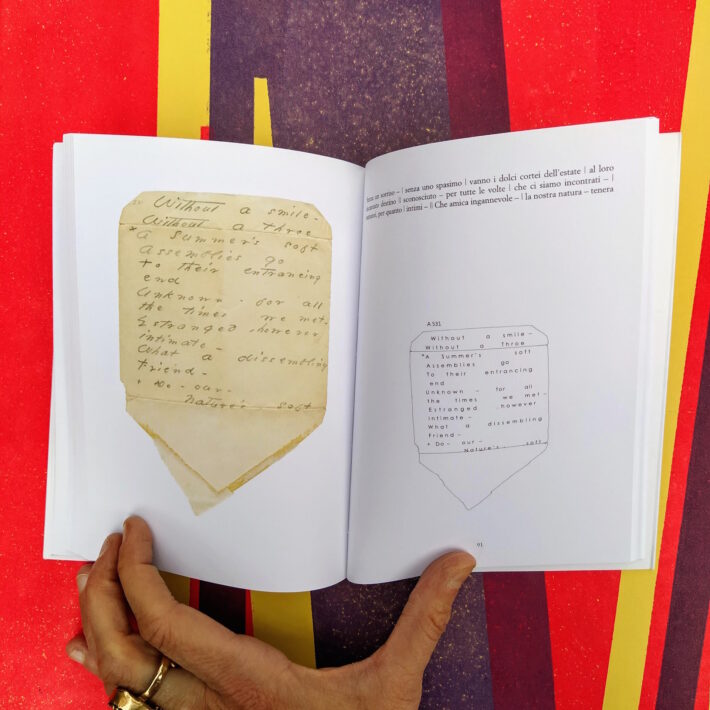 Without a smile -
Without a Throe
+ A Summer's soft
Assemblies go
To their entrancing
end
Unknown - for all
the times we met -
Estranged, however
intimate -
What a dissembling
Friend -
+ Do - our -
Nature's soft
senza un sorriso – | senza uno spasimo | vanno i dolci cortei dell'estate | al loro
incantato destino || sconosciuto – per tutte le volte | che ci siamo incontrati – |
estranei, per quanto | intimi – || Che amica ingannevole – | la nostra natura – tenera
A 531
Without a smile –
Without a Throe
+A Summer's soft
Assemblies go
To their entrancing
end
Unknown – for all
the times we met –
Estranged, however
intimate –
What a dissembling
Friend –
+ Do – our –
Nature's soft
91